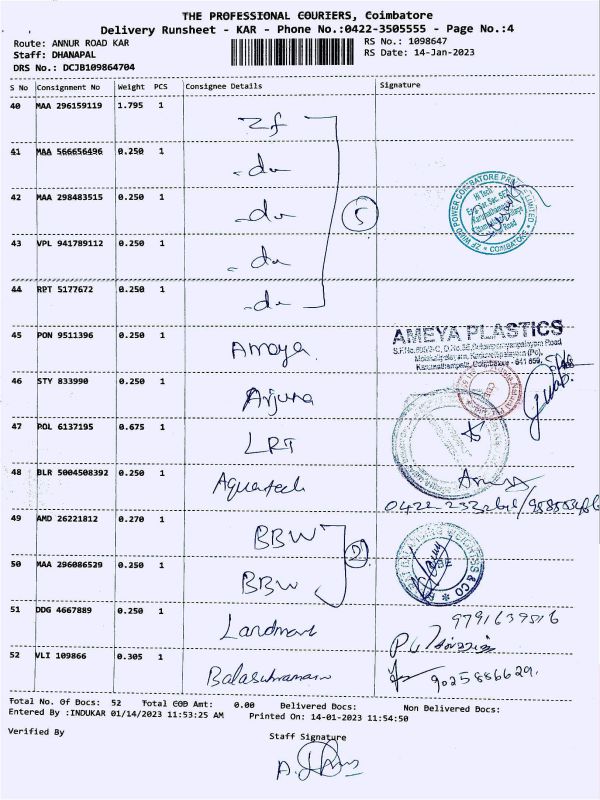 THE PROFESSIONAL COURIERS, Coimbatore
Delivery Runsheet - KAR - Phone No.:0422-3505555 - Page No.:4
Route: ANNUR ROAD KAR
RS No.: 1098647
Staff: DHANAPAL
RS Date: 14-Jan-2023
DRS No.: DCJB109864704
S No Consignment No Weight PCS Consignee Details Signature
40 MAA 296159119 1.795 1 Zf
41 MAA 566656496 0.250 1 -do
42 MAA 298483515 0.250 1 -do
5
43 VPL 941789112 0.250 1 -do
44 RPT 5177672 0.250 1 -do
ZF WIND POWER COIMBATORE PRIVATE LIMITED
Hi Tech
Road
* COIMBATORE *
45 PON 9511396 0.250 1 Ameya
AMEYA PLASTICS
Coimbatore - 641 659
46 STY 833990 0.250 1 Arjuna
47 ROL 6137195 0.675 1 LRT
48 BLR 5004508392 0.250 1 Aquatech
49 AMD 26221812 0.270 1 BBW
2
50 MAA 296086529 0.250 1 BBW
& CO
51 DDG 4667889 0.250 1 Landmark
9791639516
52 VLI 109866 0.305 1 Balasubramani
9025886629.
Total No. Of Docs: 52 Total COD Amt: 0.00 Delivered Docs: Non Delivered Docs:
Entered By :INDUKAR 01/14/2023 11:53:25 AM Printed On: 14-01-2023 11:54:50
Verified By
Staff Signature